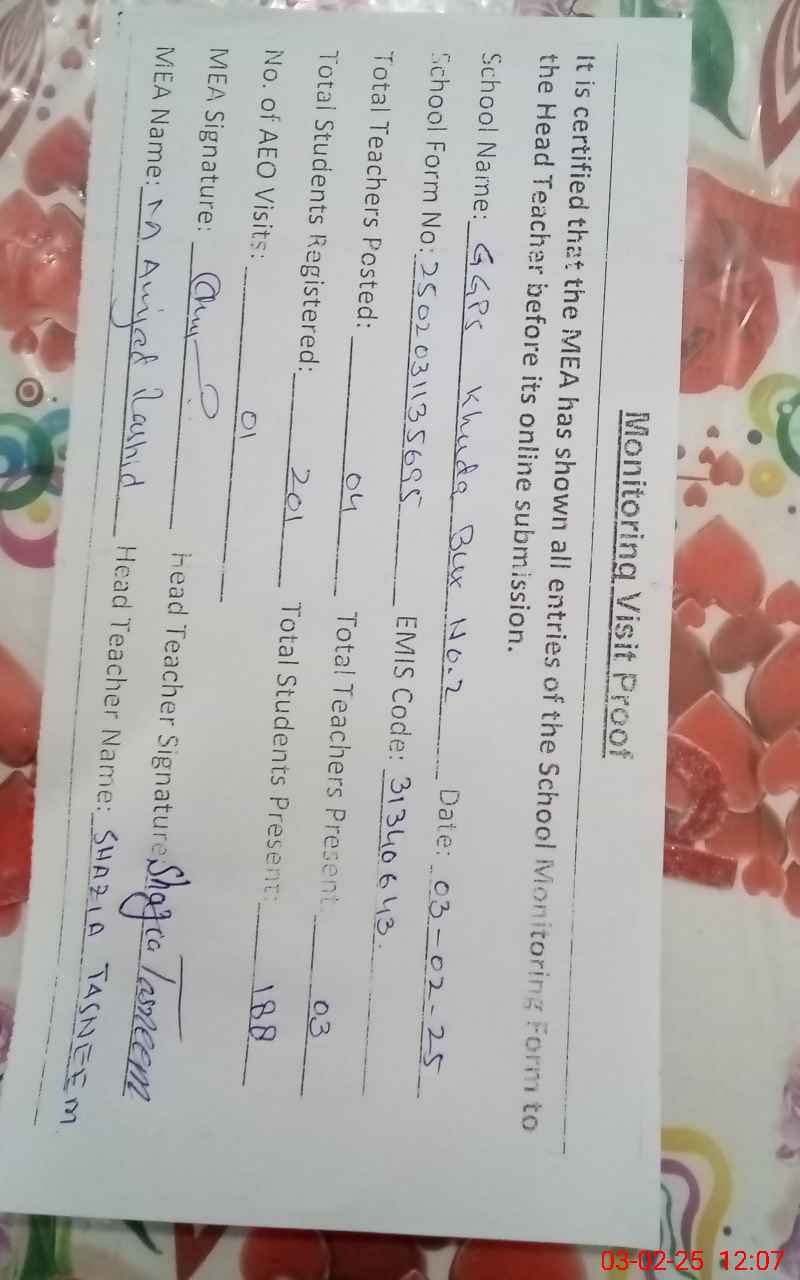 Monitoring Visit Proof
It is certified that the MEA has shown all entries of the School Monitoring Form to
the Head Teacher before its online submission.
School Name: GGPS Khuda Bux No.2 Date: 03-02-25
School Form No: 2502031135695 EMIS Code: 31340643.
Total Teachers Posted: 04 Total Teachers Present: 03
Total Students Registered: 201 Total Students Present: 188
No. of AEO Visits: 01
MEA Signature: Head Teacher Signature: Shazia Tasneem
MEA Name: M Amjad Rashid Head Teacher Name: SHAZIA TASNEEM
03-02-25 12:07